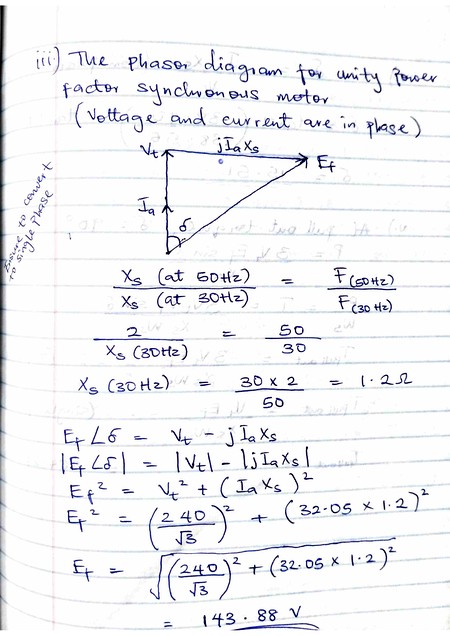 iii) The phasor diagram for unity power
factor synchronous motor
(Voltage and current are in phase)
Vt
jIaXs
Ef
Ia
δ
Ensure to convert
to single phase
Xs (at 50Hz) / Xs (at 30Hz) = F(50Hz) / F(30Hz)
2 / Xs (30Hz) = 50 / 30
Xs (30Hz) = 30 x 2 / 50 = 1.2Ω
Ef ∠δ = Vt - jIaXs
|Ef ∠δ| = |Vt| - |jIaXs|
Ef² = Vt² + (IaXs)²
Ef² = (240/√3)² + (32.05 x 1.2)²
Ef = √(240/√3)² + (32.05 x 1.2)²
= 143.88 V